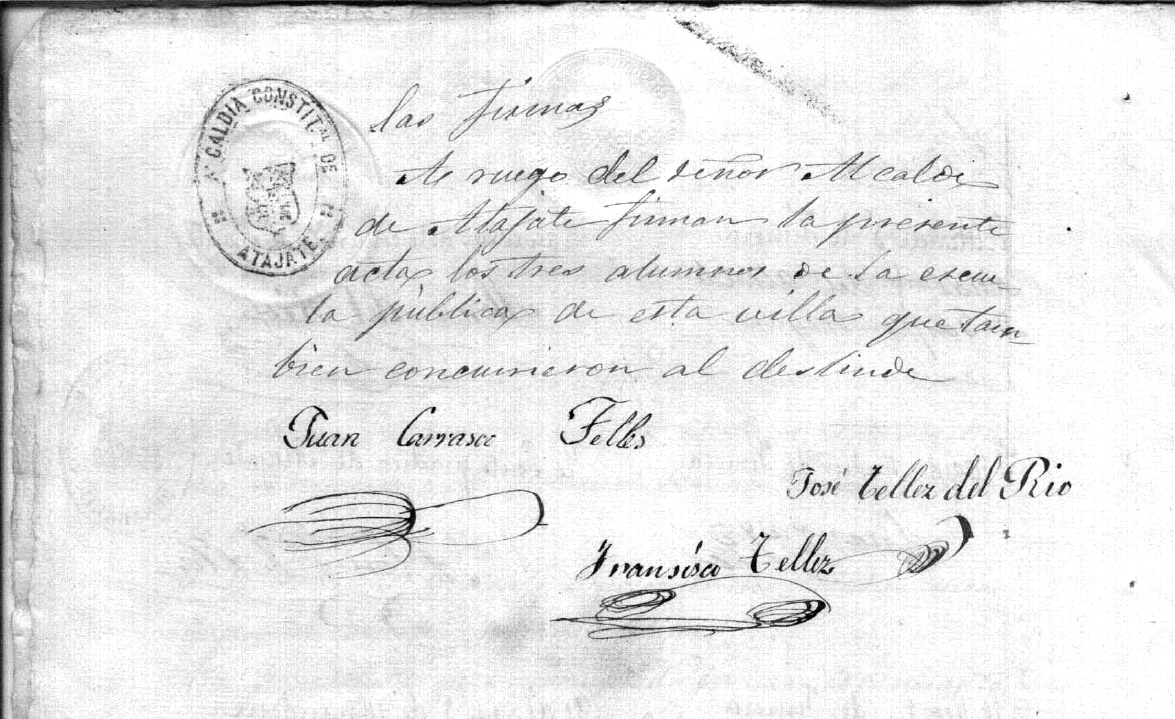 ALCALDIA CONSTIT.AL DE
ATAJATE
las firmas
A ruego del señor Alcalde
de Atajate firman la presente
acta los tres alumnos de la escue
la pública de esta villa que tam
bien concurrieron al deslinde
Juan Carrasco Telles
José Tellez del Rio
Fransisco Tellez